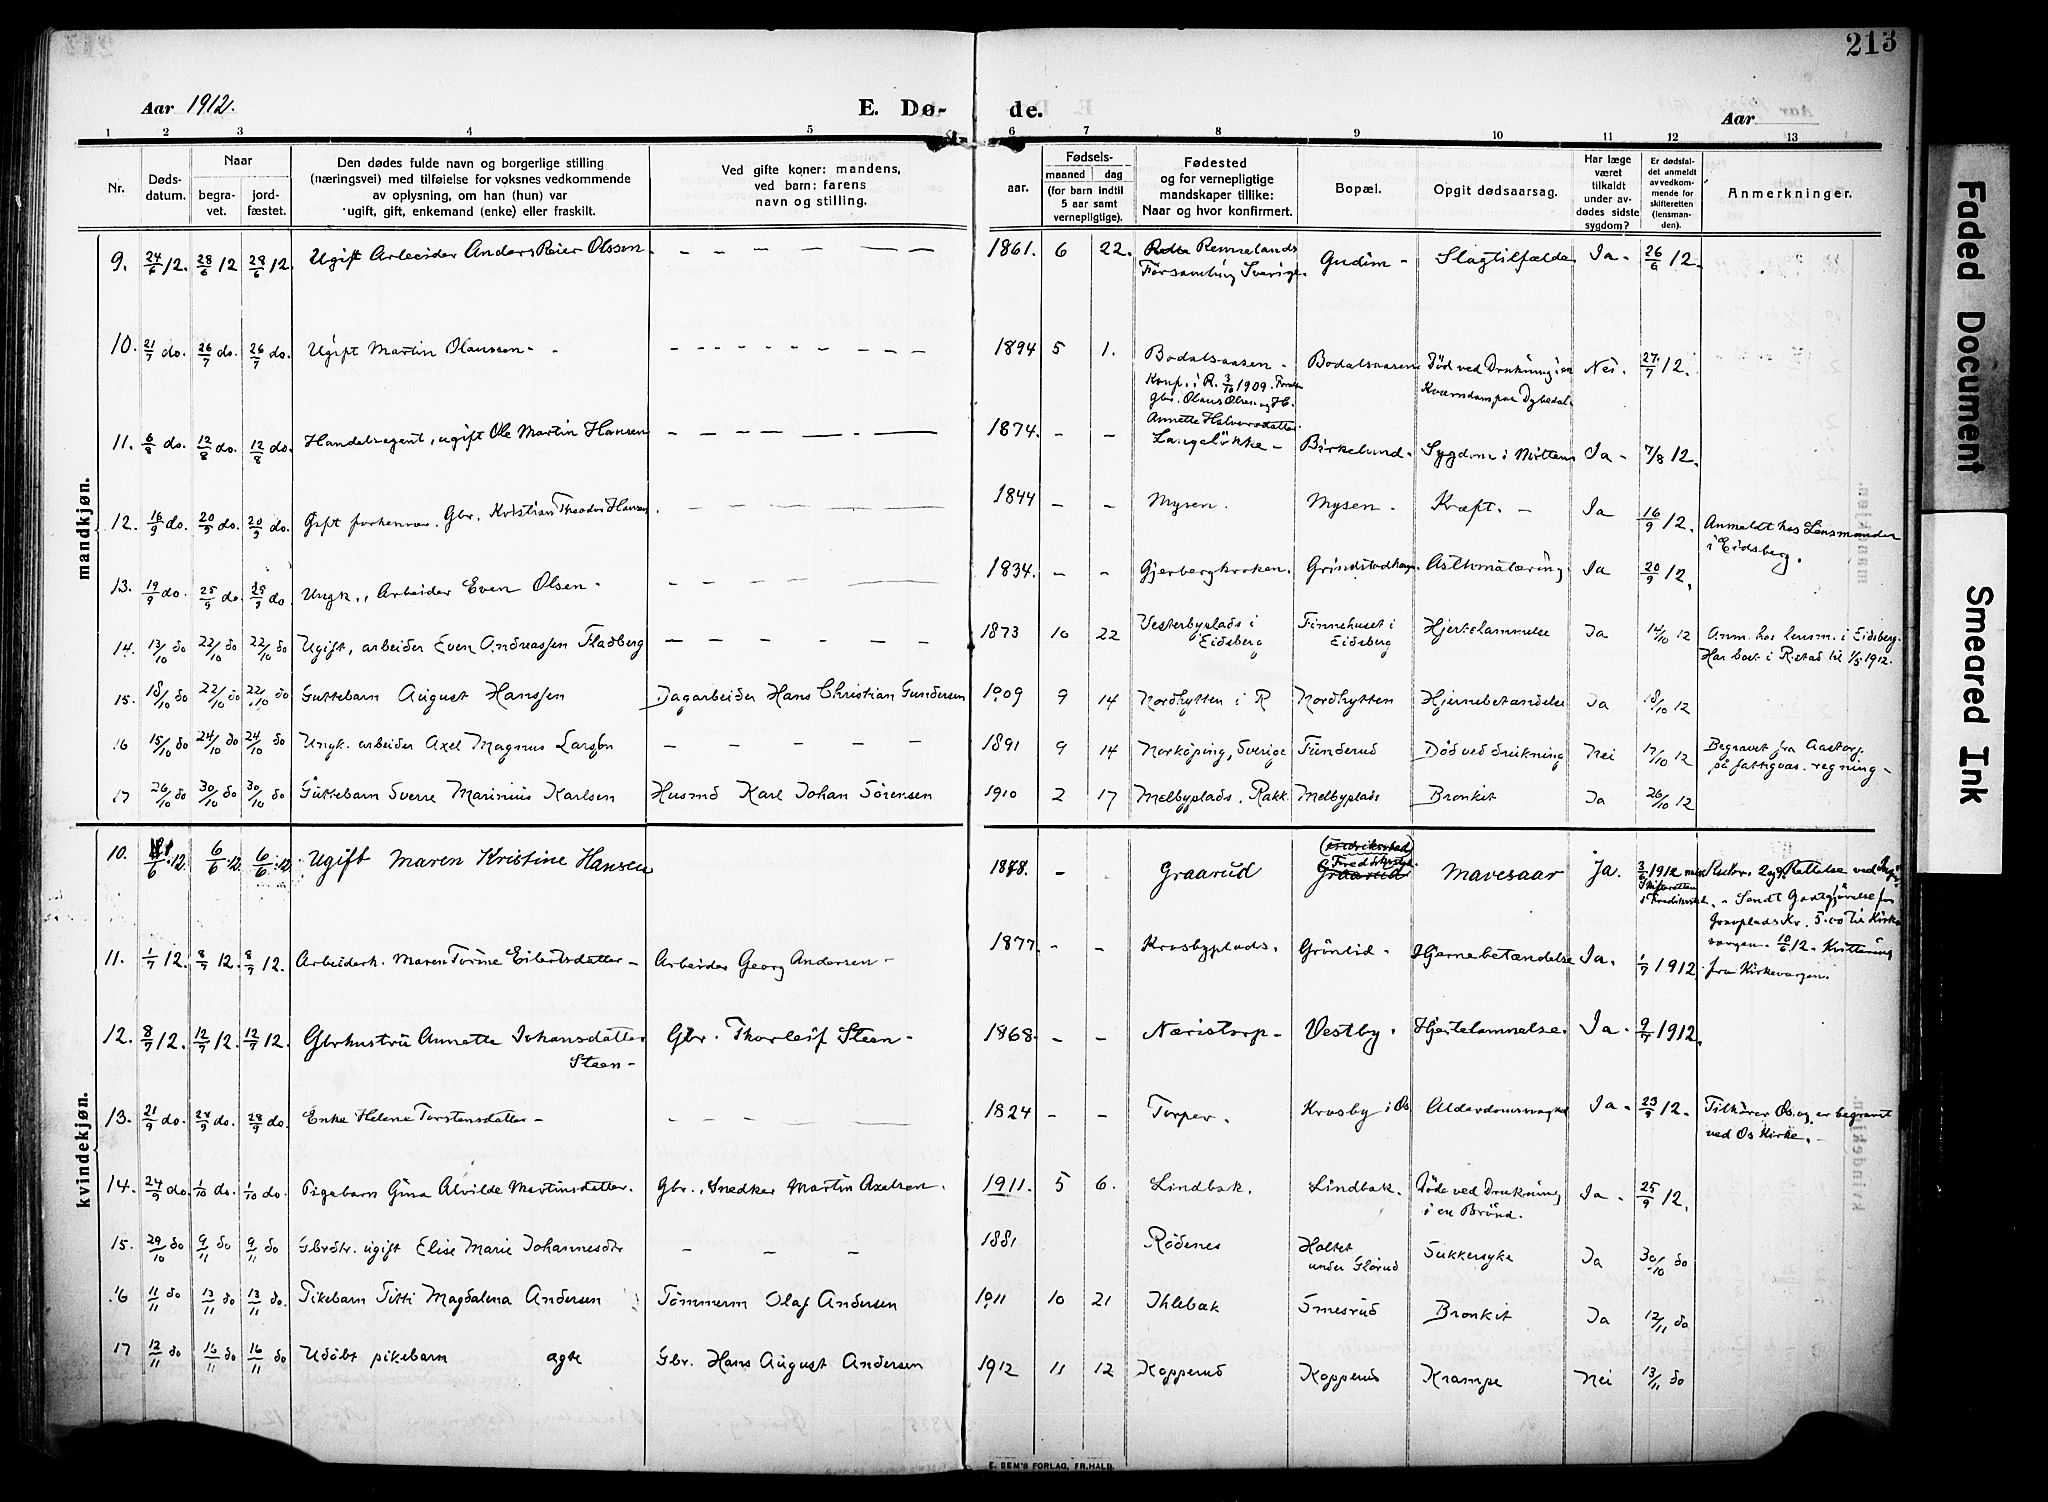 213
Aar 1912.
E. Dø-
de.
Aar
1 2 3 4 5 6 7 8 9 10 11 12 13
Nr.
Døds-
datum.
Naar
begra-
vet.
jord-
fæstet.
Den dødes fulde navn og borgerlige stilling
(næringsvei) med tilføielse for voksnes vedkommende
av oplysning, om han (hun) var
ugift, gift, enkemand (enke) eller fraskilt.
Ved gifte koner: mandens,
ved barn: farens
navn og stilling.
aar.
Fødsels-
maaned dag
(for barn indtil
5 aar samt
vernepligtige).
Fødested
og for vernepligtige
mandskaper tillike:
Naar og hvor konfirmert.
Bopæl.
Opgit dødsaarsag.
Har læge
været
tilkaldt
under av-
dødes sidste
sygdom?
Er dødsfal-
det anmeldt
av vedkom-
mende for
skifteretten
(lensman-
den).
Anmerkninger.
mandkjøn.
9. 24/6 12. 28/6 12 28/6 12. Ugift Arbeider Anders Reier Olssen. - - - - - 1861. 6 22. Rennelands Gudim - Slagtilfælde Ia - 26/6 12.
Forsamling Sverige.
10. 21/7 do. 26/7 do. 26/7 do. Ugift Martin Olaussen - - - - - 1894 5 1. Bodalsaasen - Bodalsaasen Død ved Drukning i en Nei. 27/7 12.
Konf. i R. 3/10 1909. Kværndam paa Dybedal.
Gbr. Olaus Olsen og H.
Annette Halvorsdatter.
11. 6/8 do. 12/8 do. 12/8 do. Handelsagent, ugift Ole Martin Hansen - - - - - 1874. - - Langeløkke - Birkelund. Sygdom i Milten Ia - 7/8 12.
12. 16/9 do. 20/9 do. 20/9 do. Gift forhenvær. Gbr. Kristian Theodor Hansen. - - - - - 1844 - - Mysen. Mysen. Kræft. - Ia 16/9 12. Anmeldt hos Lensmanden
i Eidsberg.
13. 19/9 do. 25/9 do. 25/9 do. Ungk., Arbeider Even Olsen - - - - - 1834. - - Gjerbergkroken. Grindstadhagen Asthmatæring Ia 20/9 12.
14. 13/10 do 22/10 do 22/10 do Ugift, arbeider Even Andreassen Fladberg - - - - - 1873 10 22 Vesterbyplads i Finnehuset i Hjertelammelse Ia 14/10 12 Anm. hos lensm. i Eidsberg.
Eidsberg Eidsberg Har boet i R.stad til 1/5 1912.
15. 18/10 do 22/10 do 22/10 do Guttebarn August Hanssen Dagarbeider Hans Christian Gundersen 1909 9 14 Nordhytten i R Nordhytten Hjernebetændelse Ia 18/10 12
16 15/10 do 24/10 do 24/10 do Ungk. arbeider Axel Magnus Larsøn - - - - - 1891 9 14 Norköping, Sverige Funderud Død ved drukning Nei 17/10 12 Begravet fra Aastorp
på fattigvæs. regning -
17 26/10 do 30/10 do 30/10 do Guttebarn Sverre Marinius Karlsen Husmd Karl Johan Sørensen 1910 2 17 Melbyplads, Rakk. Melbyplads Bronkit Ia 26/10 12
kvindekjøn.
10. 1/6 12. 6/6 12. 6/6 12. Ugift Maren Kristine Hansen 1878. - - Graarud (Fredriksstad) Graarud Mavesaar Ja. 3/6 1912
Sendt Godtgjørelse for
Gravplads Kr. 5.00 til Kirke-
værgen. 10/6 12 - Kvittering
fra Kirkeværgen.
11. 1/7 12. 8/7 12. 8/7 12. Arbeiderk. Maren Torine Eilertsdatter - Arbeider Georg Andersen - 1877. - - Krosbyplads. Grønlid - Hjernebetændelse Ia. 1/7 1912
12. 8/7 12. 12/7 12. 12/7 12. Gbrhustru Annette Johansdatter Gbr. Thorleif Steen - 1868. - - Næristorp - Vestby. Hjertelammelse. Ia - 9/7 1912.
Steen -
13. 21/9 do. 28/9 do. 28/9 do. Enke Helene Torstensdatter - - - - - 1824 - - Torper. Krosby i Os Alderdomssvaghed Ia - 23/9 12. Tilhører Os og er begravet
ved Os Kirke. -
14. 24/9 do. 1/10 do. 1/10 do. Pigebarn Gina Alvilde Martinsdatter. Gbr., Snedker Martin Axelsen. 1911. 5 6. Lindbak. Lindbak. Døde ved Drukning Ia - 25/9 12.
i en Brønd.
15. 29/10 do 9/11 do 9/11 do Gbrdtr. ugift Elise Marie Johannesdtr - - - 1881 Rødenes Holtet Sukkersyke Ia 30/10 do
under Glørud
16 11/11 do 13/11 do 13/11 do Pikebarn Titti Magdalena Andersen Tømmerm Olaf Andersen 1911 10 21 Ihlebæk Smesrud Bronkit Ia 12/11 do
17 12/11 do 16/11 do 16/11 do Udøbt pikebarn ægte Gbr. Hans August Andersen 1912 11 12 Kopperud Kopperud Krampe Nei 13/11 do
E. SEM'S FORLAG, FR.HALD.
Faded Document
Smeared Ink